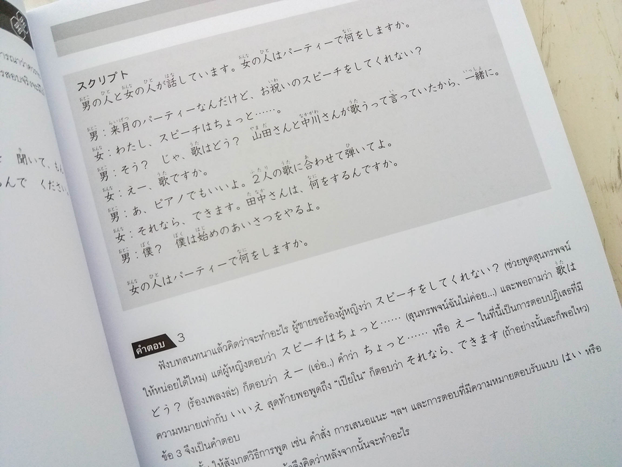 スクリプト
男の人と女の人が話しています。女の人はパーティーで何をしますか。
男：来月のパーティーなんだけど、お祝いのスピーチをしてくれない？
女：わたし、スピーチはちょっと……。
男：そう？ じゃ、歌はどう？ 山田さんと中川さんが歌うって言っていたから、一緒に。
女：えー、歌ですか。
男：あ、ピアノでもいいよ。２人の歌に合わせて弾いてよ。
女：それなら、できます。田中さんは、何をするんですか。
男：僕？ 僕は始めのあいさつをやるよ。
女の人はパーティーで何をしますか。
คำตอบ 3
ฟังบทสนทนาแล้วคิดว่าจะทำอะไร ผู้ชายขอร้องผู้หญิงว่า スピーチをしてくれない？ (ช่วยพูดสุนทรพจน์
ให้หน่อยได้ไหม) แต่ผู้หญิงตอบว่า スピーチはちょっと…… (สุนทรพจน์ฉันไม่ค่อย...) และพอถามว่า 歌は
どう？ (ร้องเพลงล่ะ) ก็ตอบว่า えー (เอ่อ..) คำว่า ちょっと…… หรือ えー ในที่นี้เป็นการตอบปฏิเสธที่มี
ความหมายเท่ากับ いいえ สุดท้ายพอพูดถึง "เปียโน" ก็ตอบว่า それなら、できます (ถ้าอย่างนั้นละก็พอไหว)
ข้อ 3 จึงเป็นคำตอบ
ให้สังเกตวิธีการพูด เช่น คำสั่ง การเสนอแนะ ฯลฯ และการตอบที่มีความหมายตอบรับแบบ はい หรือ
คิดว่าหลังจากนั้นจะทำอะไร
聞いて、
んで ください